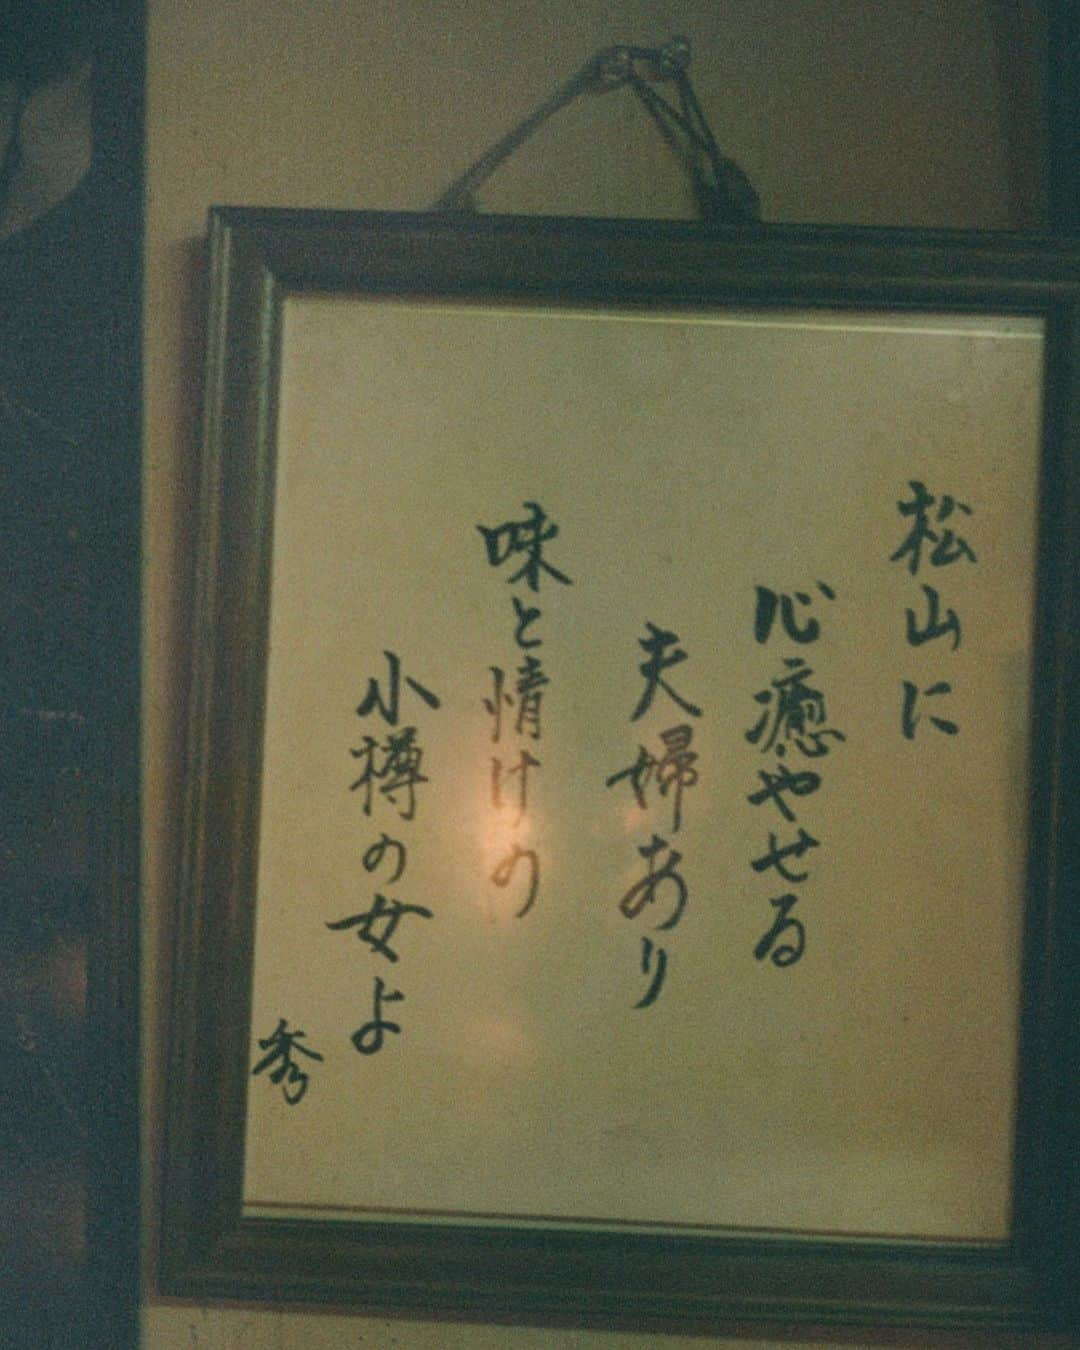 松山に
心癒やせる
夫婦あり
味と情けの
小樽の女よ
秀